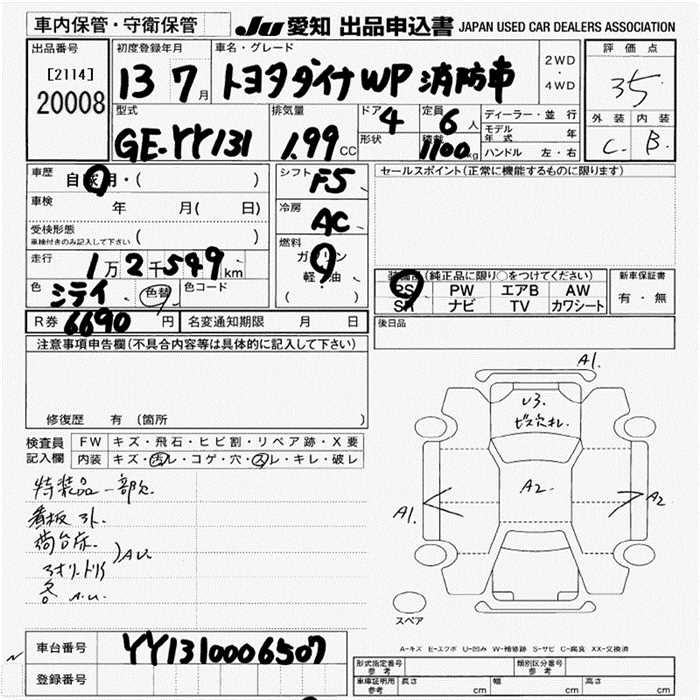 車内保管・守衛保管
JU 愛知 出品申込書 JAPAN USED CAR DEALERS ASSOCIATION
出品番号
[2114]
20008
初度登録年月
13 7月
車名・グレード
トヨタダイナWP 消防車
2WD
・
4WD
評価点
35
外装 内装
C. B.
型式
GE-YY131
排気量
1.99 CC
ドア
4
形状
定員
6人
積載
1100kg
ディーラー・並行
モデル年式 年
ハンドル 左・右
車歴
自家用・( )
車検
年 月( 日)
受検形態
車検付きのみ記入して下さい ( )
走行
1万2千549km
色
シティ
色替
色コード
R券 6690円
名変通知期限 月 日
シフト
F5
冷房
AC
燃料
ガソリン
軽油
( )
セールスポイント(正常に機能するものに限ります)
装備品(純正品に限り○をつけてください)
PS PW エアB AW
SR ナビ TV カワシート
新車保証書
有・無
後日品
注意事項申告欄(不具合内容等は具体的に記入して下さい)
修復歴 有 (箇所 )
検査員記入欄
FW キズ・飛石・ヒビ割・リペア跡・X要
内装 キズ・汚レ・コゲ・穴・スレ・キレ・破レ
特装品一部欠
看板外.
荷台床.
アオリ.トリイ
)AU.
各 A.U.
A1.
U3.
ビス穴有.
A2.
A1.
A2
スペア
A-キズ E-エクボ U-凹み W-補修跡 S-サビ C-腐食 XX-交換済
車台番号 YY1310006507
登録番号
形式指定番号
参考
類別区分番号
参考
車庫証明用
参考
長さ cm 幅 cm 高さ cm